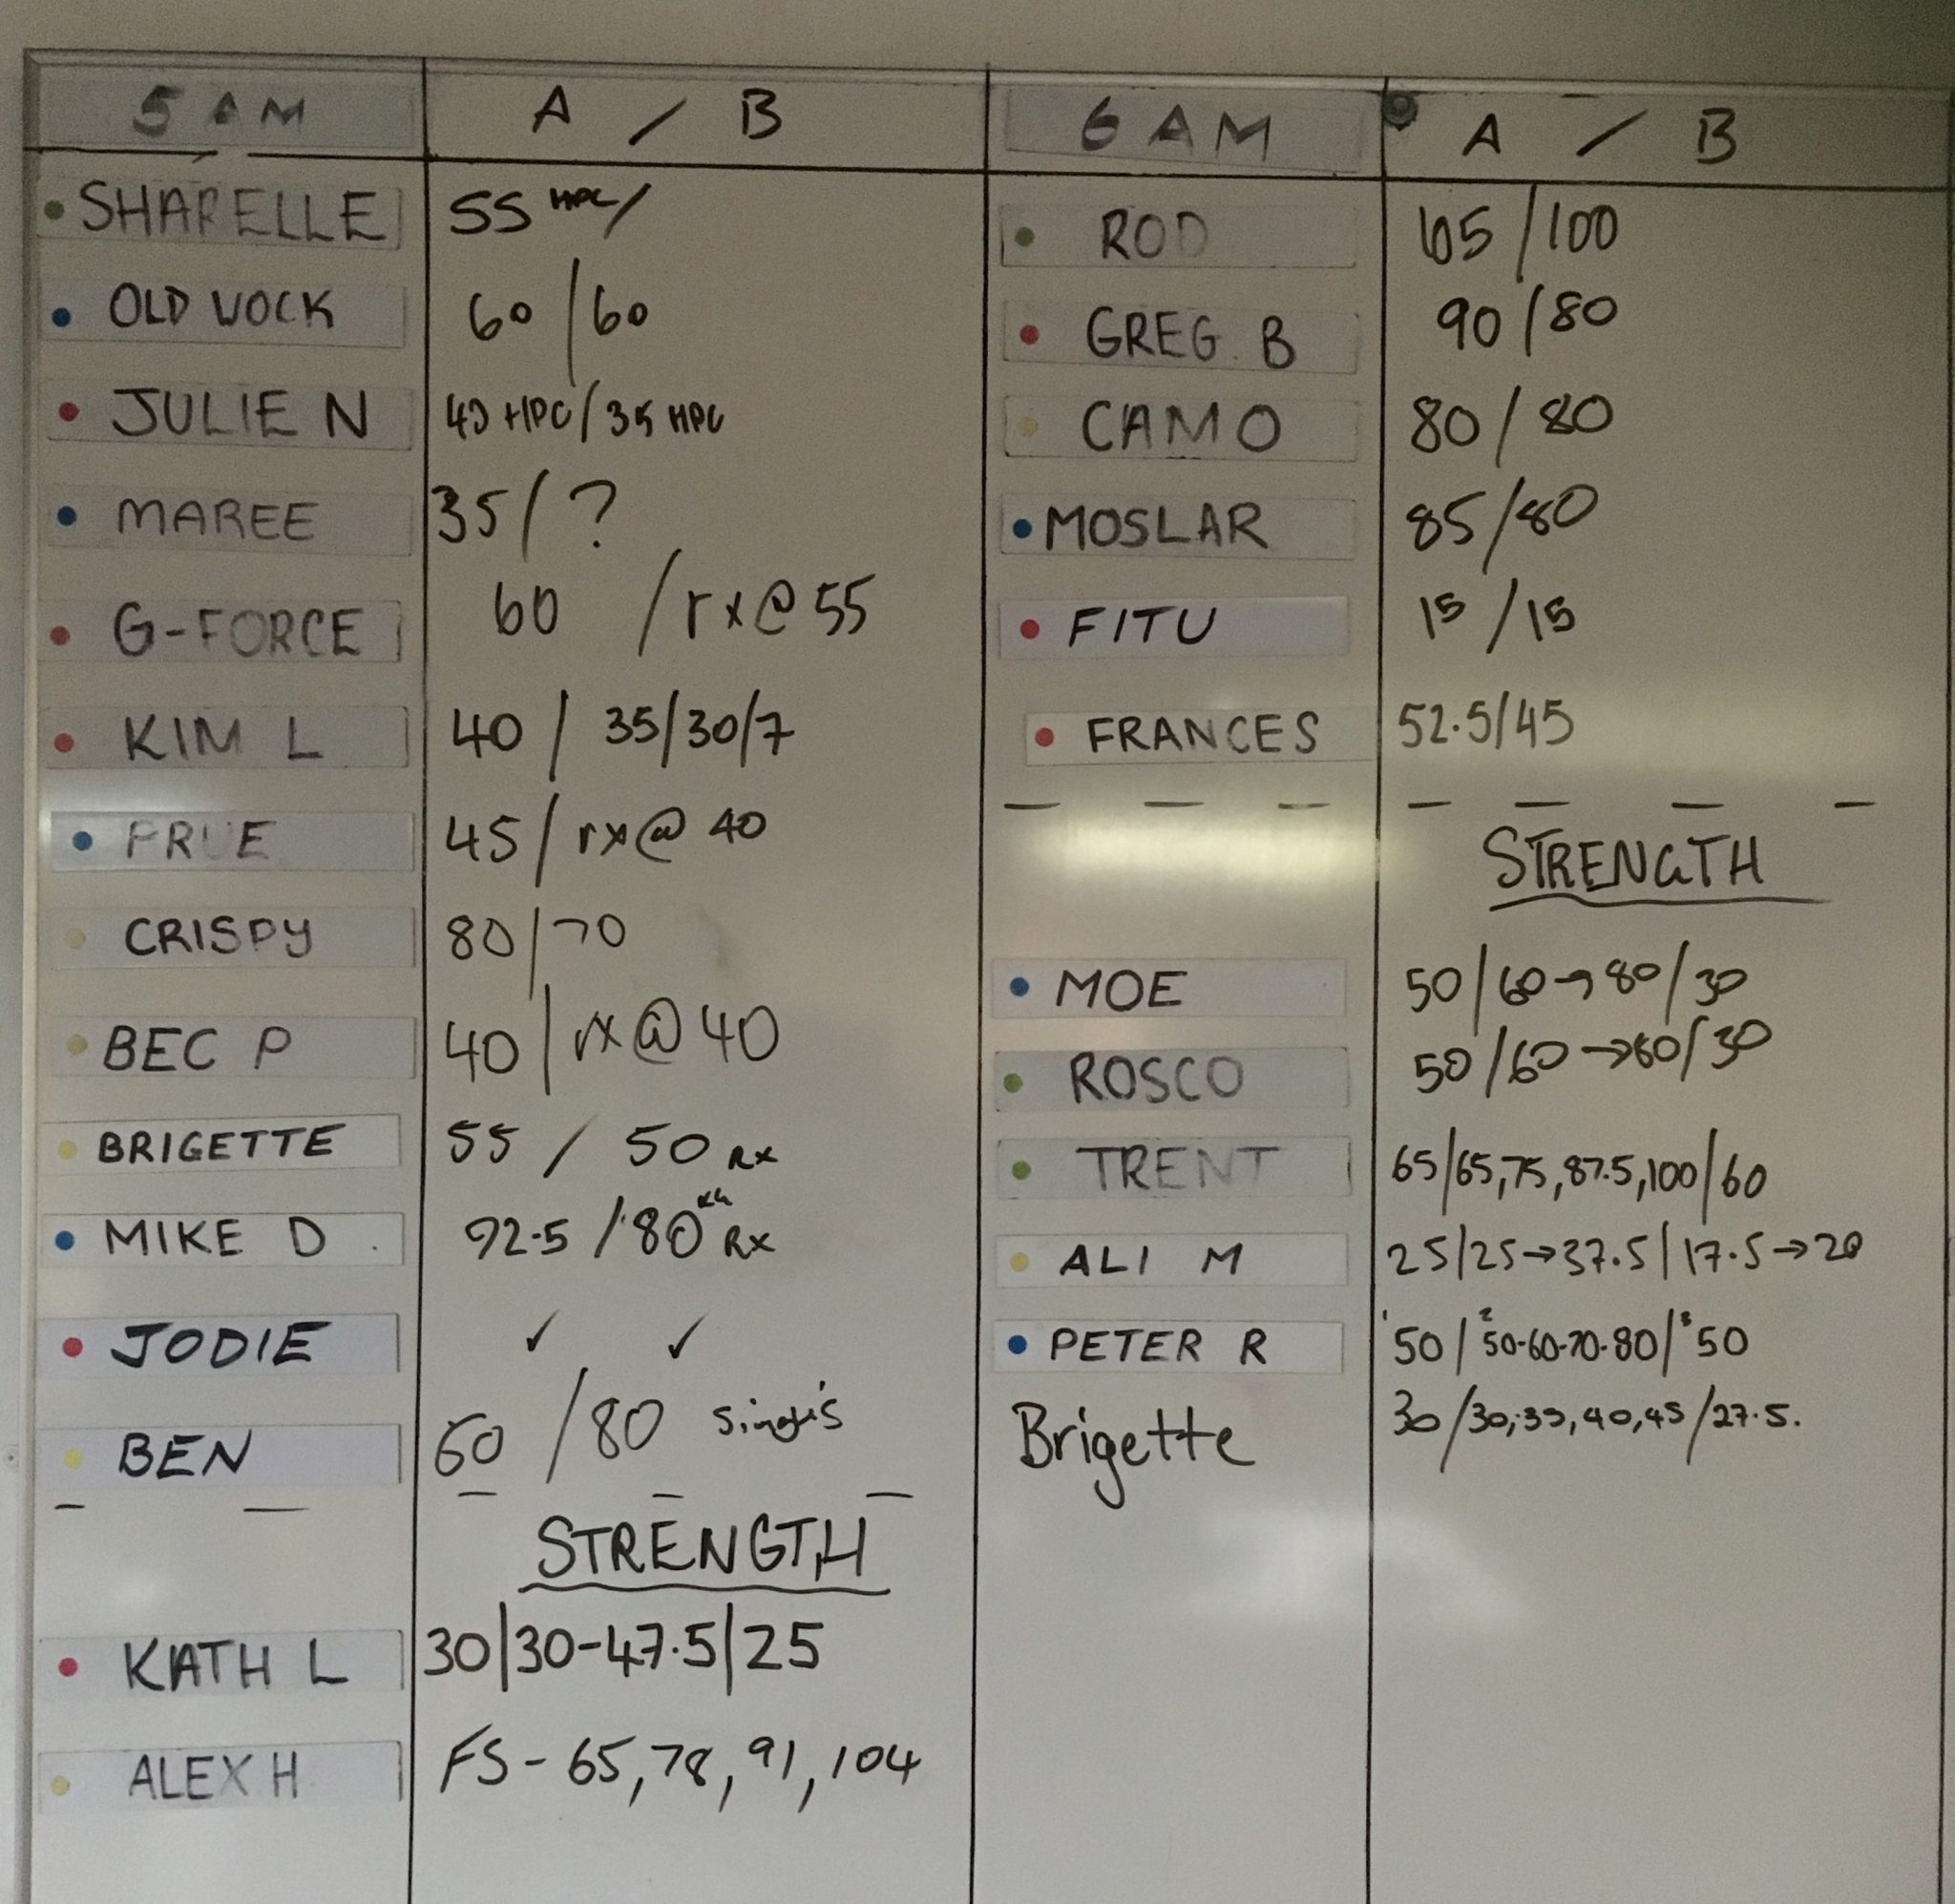 5 AM
A / B
SHAPELLE 55 HPC/
OLD WOCK 60 / 60
JULIE N 40 HPC / 35 HPC
MAREE 35 / ?
G-FORCE 60 / rx@55
KIM L 40 / 35/30/7
PRUE 45 / rx@ 40
CRISPY 80/70
BEC P 40 / rx@40
BRIGETTE 55 / 50 RX
MIKE D 92.5 / 80 KG RX
JODIE ✓ ✓
BEN 60 / 80
STRENGTH
KATH L 30|30-47.5|25
ALEX H FS - 65, 78, 91, 104
6 AM
A / B
ROD 65 / 100
GREG B 90 / 80
CAMO 80 / 80
MOSLAR 85/80
FITU 15 / 15
FRANCES 52.5/45
STRENGTH
MOE 50/60→80/30
ROSCO 50/60→80/30
TRENT 65/65,75,87.5,100/60
ALI M 25/25→37.5/17.5→20
PETER R 50 / 50-60-70-80 / 50
Brigette 30/30,35,40,45/27.5.